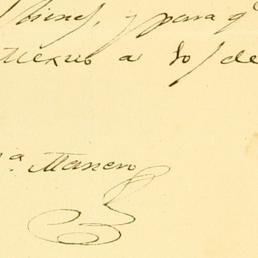 bienes, y para q
Mexico a 10 de
ª Manen